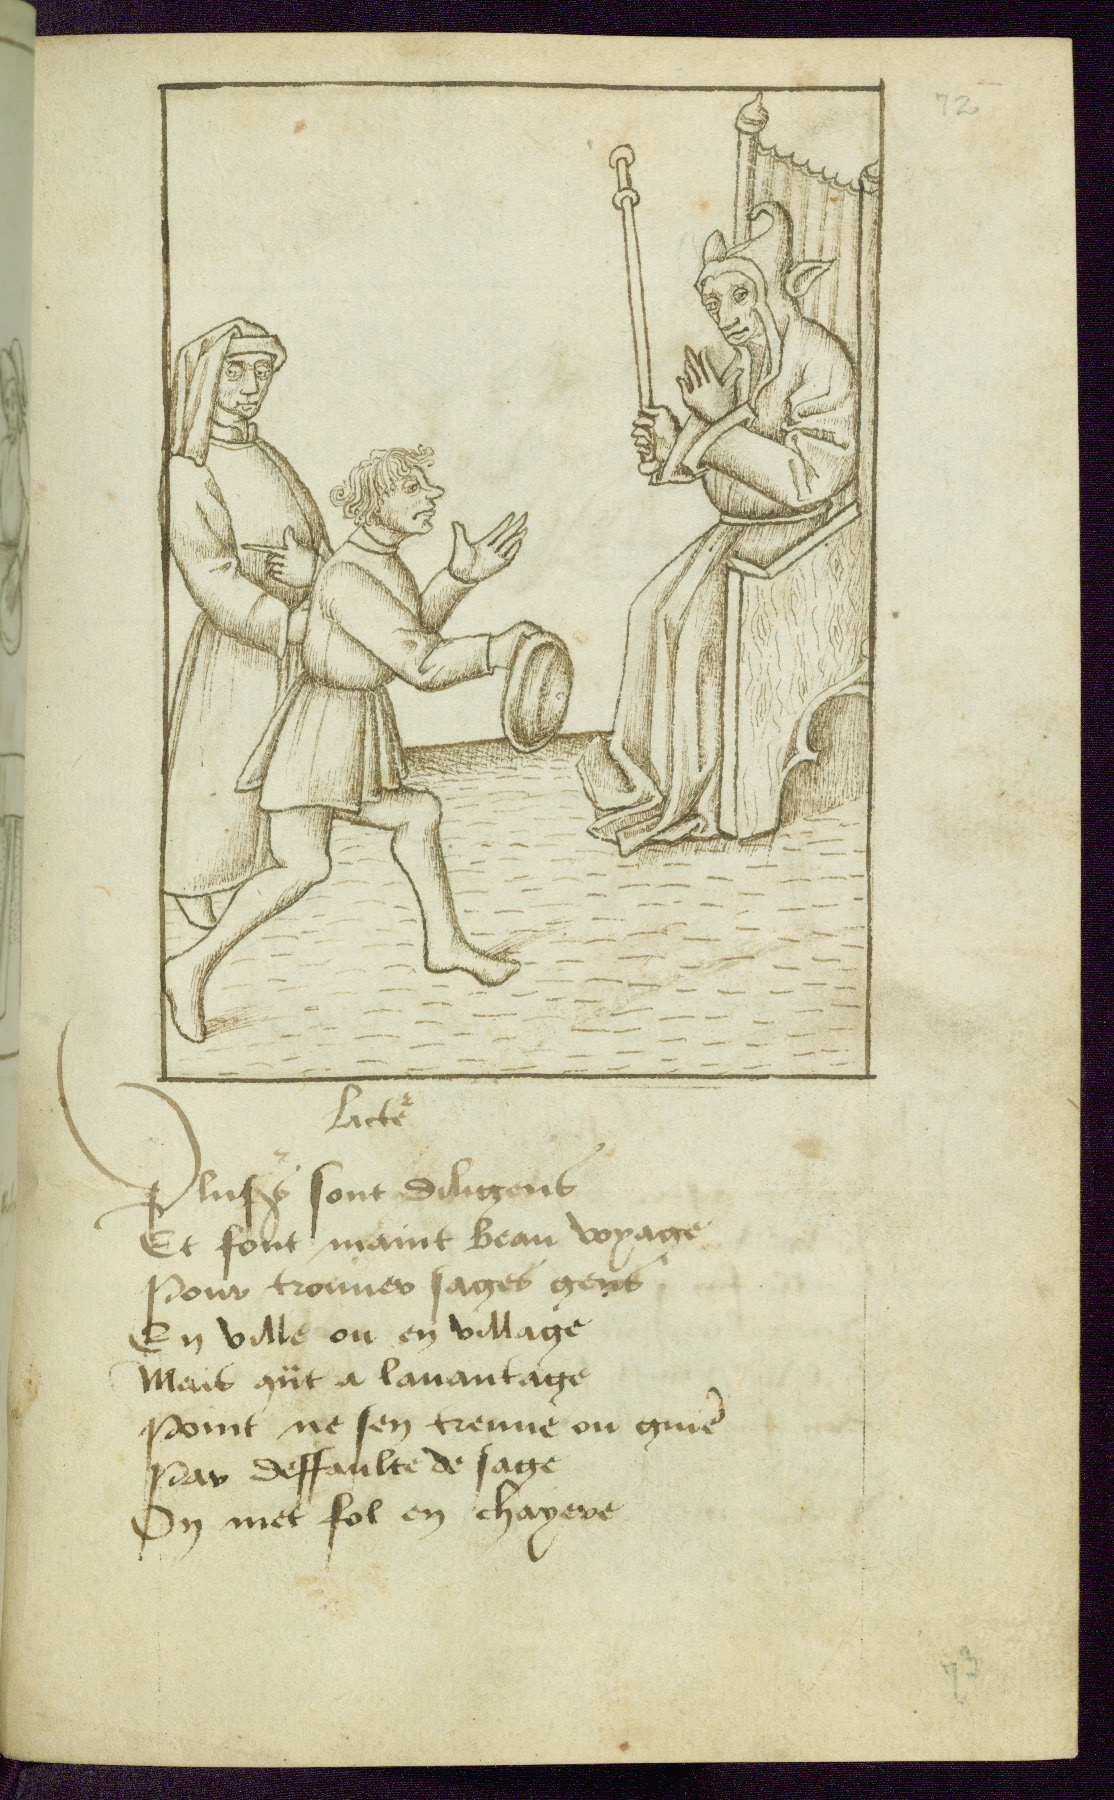 72
Lacteʳ
Plusʳˢ sont diligens
Et font maint beau voyage
Pour trouver sages gens
En ville ou en village
Mais qũt a lauantage
Point ne sen treuue ou guieʳ
Par deffaulte de sage
On met fol en chayere
73